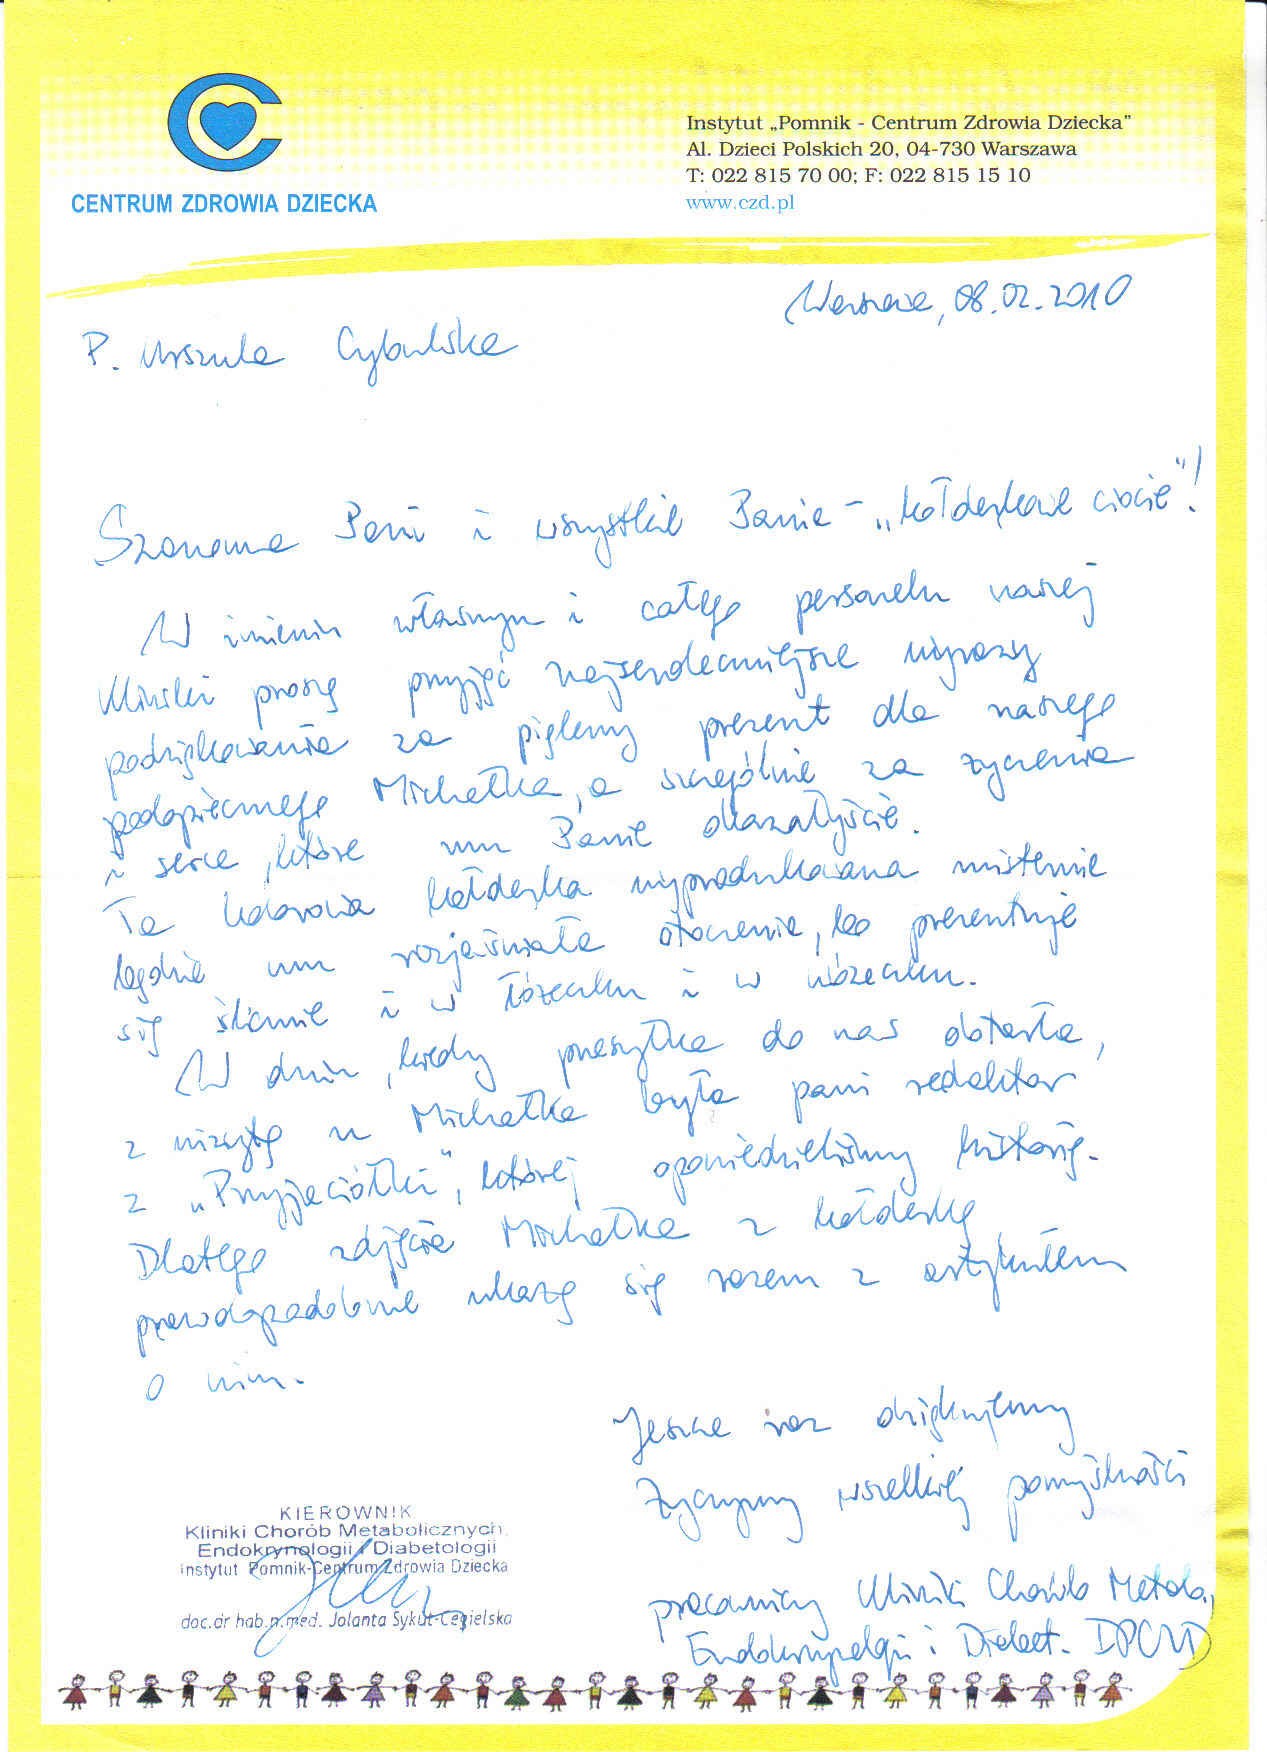 CENTRUM ZDROWIA DZIECKA
Instytut „Pomnik - Centrum Zdrowia Dziecka”
Al. Dzieci Polskich 20, 04-730 Warszawa
T: 022 815 70 00; F: 022 815 15 10
www.czd.pl
Warszawa, 08.02.2010
P. Urszula Cybulska
Szanowna Pani i wszystkie Panie - „kołderkowe ciocie”!
W imieniu własnym i całego personelu naszej
Kliniki proszę przyjąć najserdeczniejsze wyrazy
podziękowania za piękny prezent dla naszego
podopiecznego Michałka, a szczególnie za życzenia
i serce, które mu Panie okazałyście.
Ta kolorowa kołderka wyprodukowana misternie
będzie mu rozjaśniała otoczenie, bo prezentuje
się ślicznie i w łóżeczku i w wózeczku.
W dniu, kiedy przesyłka do nas dotarła,
z wizytą u Michałka była pani redaktor
z „Przyjaciółki”, której opowiedzieliśmy historię.
Dlatego zdjęcie Michałka z kołderką
prawdopodobnie ukażę się razem z artykułem
o nim.
Jeszcze raz dziękujemy
Życzymy wszelkiej pomyślności
pracownicy Kliniki Chorób Metab.,
Endokrynologii i Diabet. IPCZD
KIEROWNIK
Kliniki Chorób Metabolicznych,
Endokrynologii i Diabetologii
Instytut Pomnik-Centrum Zdrowia Dziecka
doc.dr hab.n.med. Jolanta Sykut-Cegielska